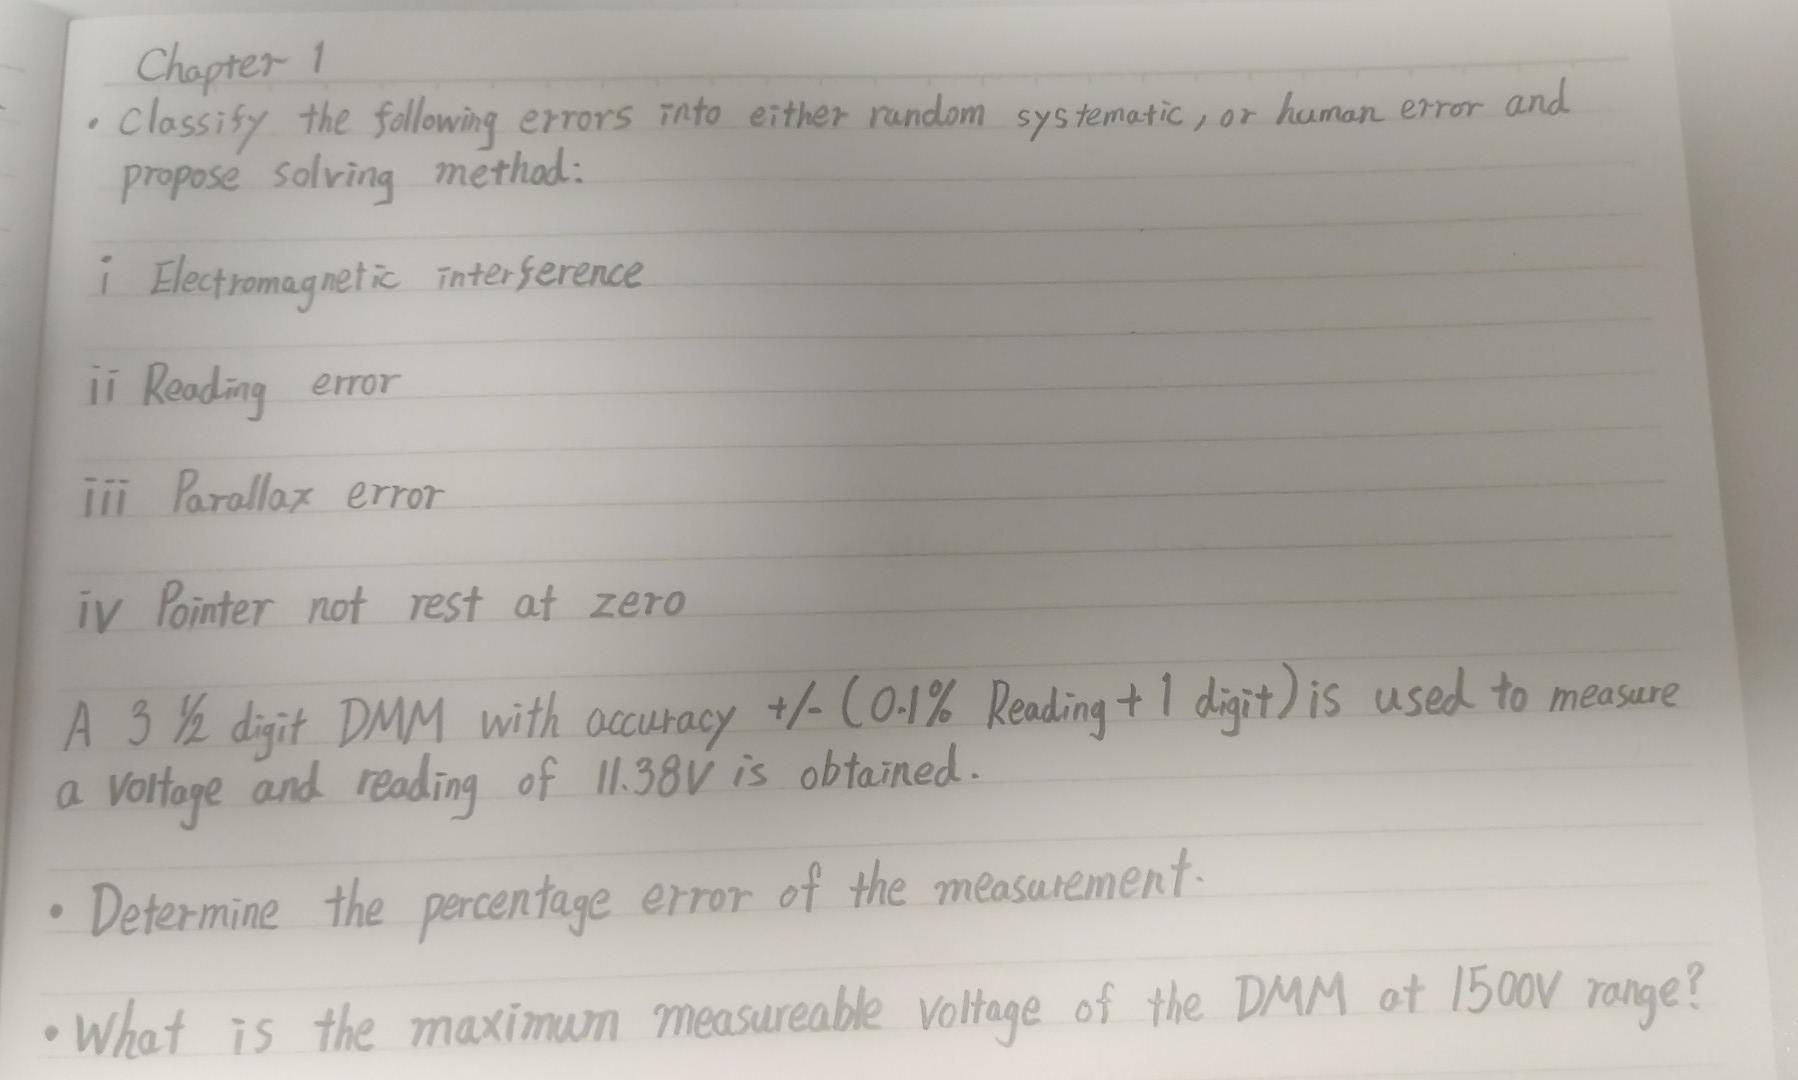 Chapter 1
• Classify the following errors into either random systematic, or human error and
propose solving method:
i Electromagnetic interference
ii Reading error
iii Parallax error
iv Pointer not rest at zero
A 3 ½ digit DMM with accuracy +/- (0.1% Reading + 1 digit) is used to measure
a voltage and reading of 11.38V is obtained.
• Determine the percentage error of the measurement.
• What is the maximum measureable voltage of the DMM at 1500V range?